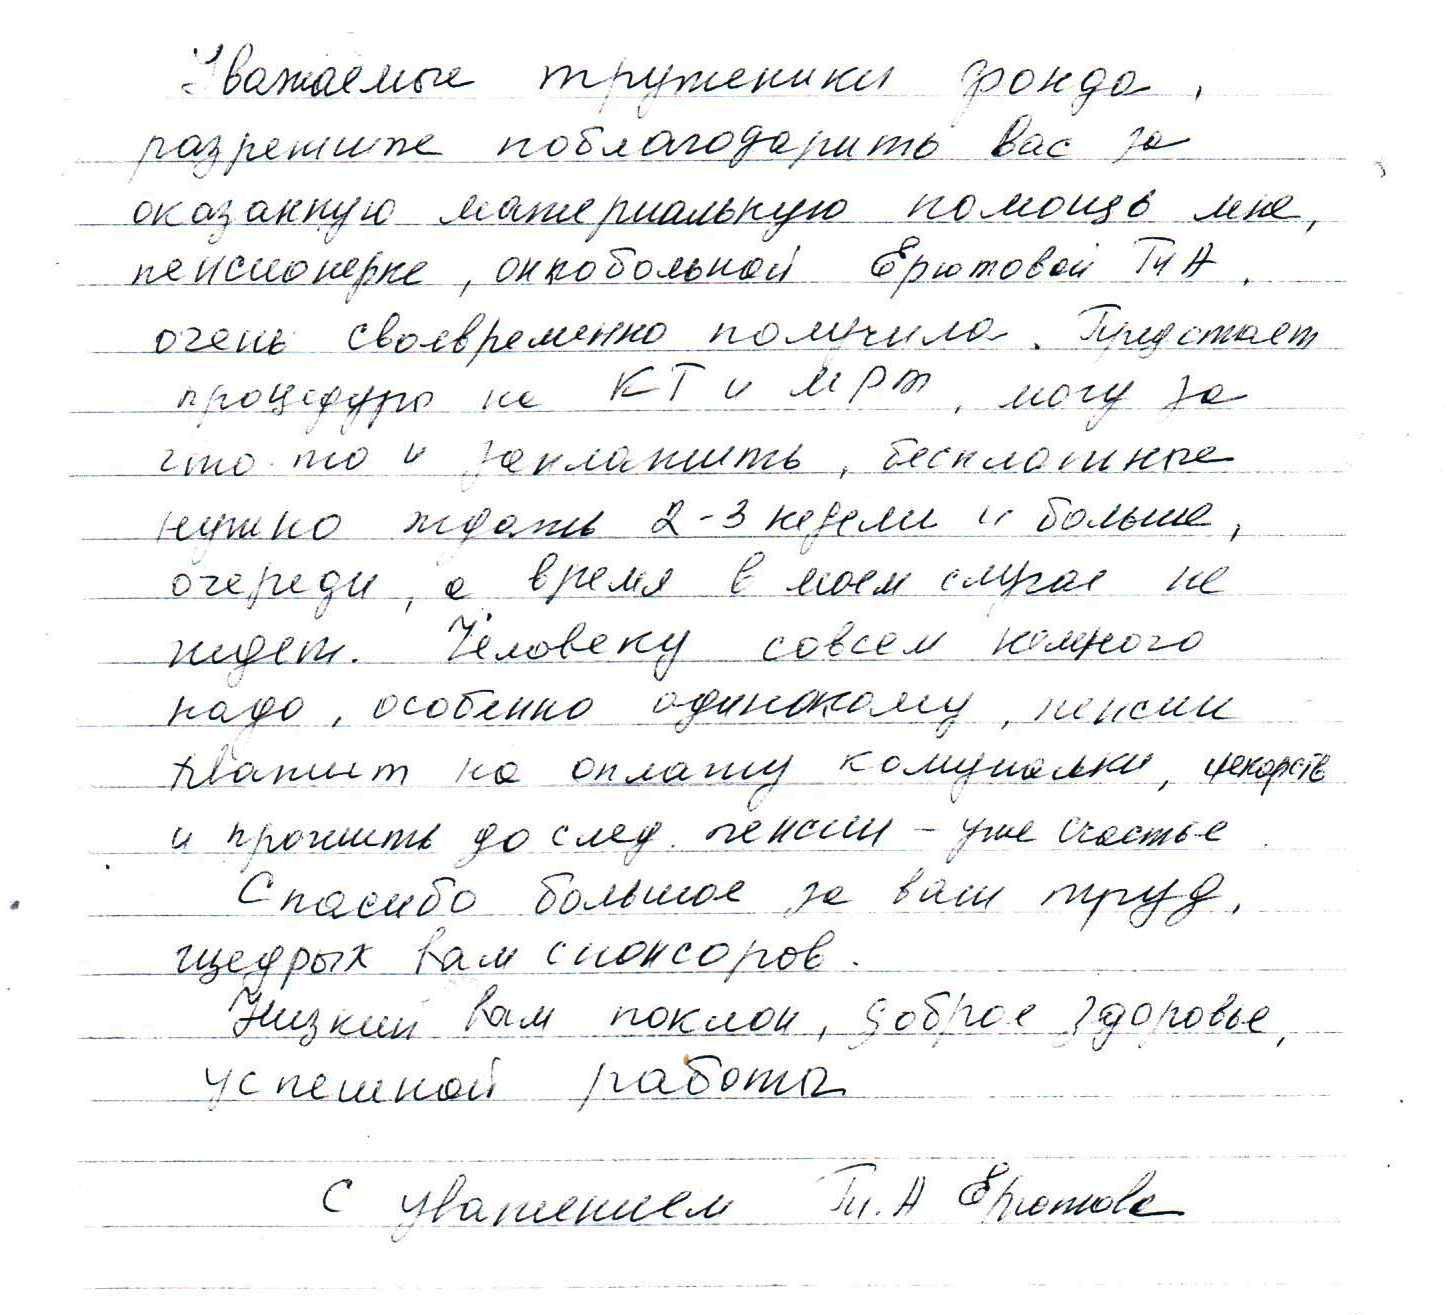 Уважаемые труженики фонда,
разрешите поблагодарить вас за
оказанную материальную помощь мне,
пенсионерке, онкобольной Ерютовой Ти А.
очень своевременно получила. Предстоят
процедуры на КТ и МРТ, могу за
что-то и заплатить, бесплатные
нужно ждать 2-3 недели и больше,
очереди, а время в моем случае не
ждет. Человеку совсем немного
надо, особенно одинокому, пенсии
хватит на оплату комуналки, лекарств
и прожить до след. пенсии - уже счастье
Спасибо большое за ваш труд,
щедрых вам спонсоров.
Низкий вам поклон, доброе здоровье,
успешной работы
С уважением Ти. А Ерютова